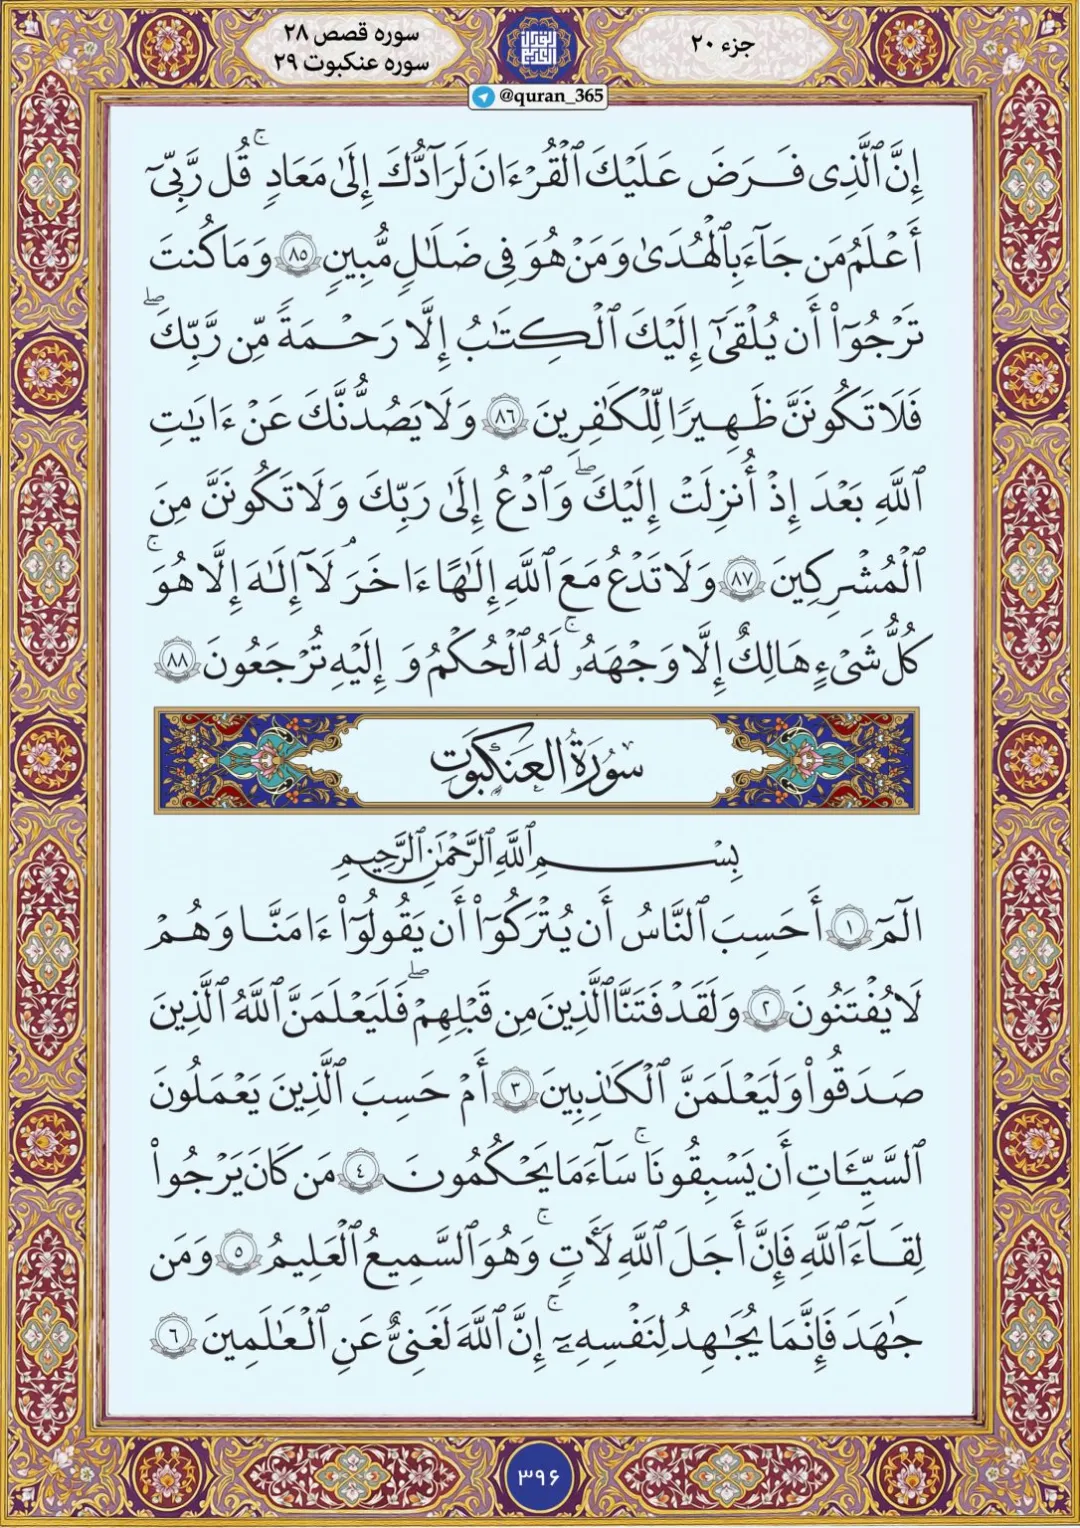 جزء ۲۰
سوره قصص ۲۸
سوره عنکبوت ۲۹
@quran_365
إِنَّ ٱلَّذِى فَرَضَ عَلَيْكَ ٱلْقُرْءَانَ لَرَآدُّكَ إِلَىٰ مَعَادٍۚ قُل رَّبِّىٓ
أَعْلَمُ مَن جَآءَ بِٱلْهُدَىٰ وَمَنْ هُوَ فِى ضَلَٰلٍ مُّبِينٍ ٨٥ وَمَا كُنتَ
تَرْجُوٓا۟ أَن يُلْقَىٰٓ إِلَيْكَ ٱلْكِتَٰبُ إِلَّا رَحْمَةً مِّن رَّبِّكَۖ
فَلَا تَكُونَنَّ ظَهِيرًا لِّلْكَٰفِرِينَ ٨٦ وَلَا يَصُدُّنَّكَ عَنْ ءَايَٰتِ
ٱللَّهِ بَعْدَ إِذْ أُنزِلَتْ إِلَيْكَۖ وَٱدْعُ إِلَىٰ رَبِّكَ وَلَا تَكُونَنَّ مِنَ
ٱلْمُشْرِكِينَ ٨٧ وَلَا تَدْعُ مَعَ ٱللَّهِ إِلَٰهًا ءَاخَرَۘ لَآ إِلَٰهَ إِلَّا هُوَۚ
كُلُّ شَىْءٍ هَالِكٌ إِلَّا وَجْهَهُۥۚ لَهُ ٱلْحُكْمُ وَإِلَيْهِ تُرْجَعُونَ ٨٨
سُورَةُ العَنكَبُوت
بِسْمِ ٱللَّهِ ٱلرَّحْمَٰنِ ٱلرَّحِيمِ
الٓمٓ ١ أَحَسِبَ ٱلنَّاسُ أَن يُتْرَكُوٓا۟ أَن يَقُولُوٓا۟ ءَامَنَّا وَهُمْ
لَا يُفْتَنُونَ ٢ وَلَقَدْ فَتَنَّا ٱلَّذِينَ مِن قَبْلِهِمْۖ فَلَيَعْلَمَنَّ ٱللَّهُ ٱلَّذِينَ
صَدَقُوا۟ وَلَيَعْلَمَنَّ ٱلْكَٰذِبِينَ ٣ أَمْ حَسِبَ ٱلَّذِينَ يَعْمَلُونَ
ٱلسَّيِّـَٔاتِ أَن يَسْبِقُونَاۚ سَآءَ مَا يَحْكُمُونَ ٤ مَن كَانَ يَرْجُوا۟
لِقَآءَ ٱللَّهِ فَإِنَّ أَجَلَ ٱللَّهِ لَأٓتٍۚ وَهُوَ ٱلسَّمِيعُ ٱلْعَلِيمُ ٥ وَمَن
جَٰهَدَ فَإِنَّمَا يُجَٰهِدُ لِنَفْسِهِۦٓۚ إِنَّ ٱللَّهَ لَغَنِىٌّ عَنِ ٱلْعَٰلَمِينَ ٦
۳۹۶